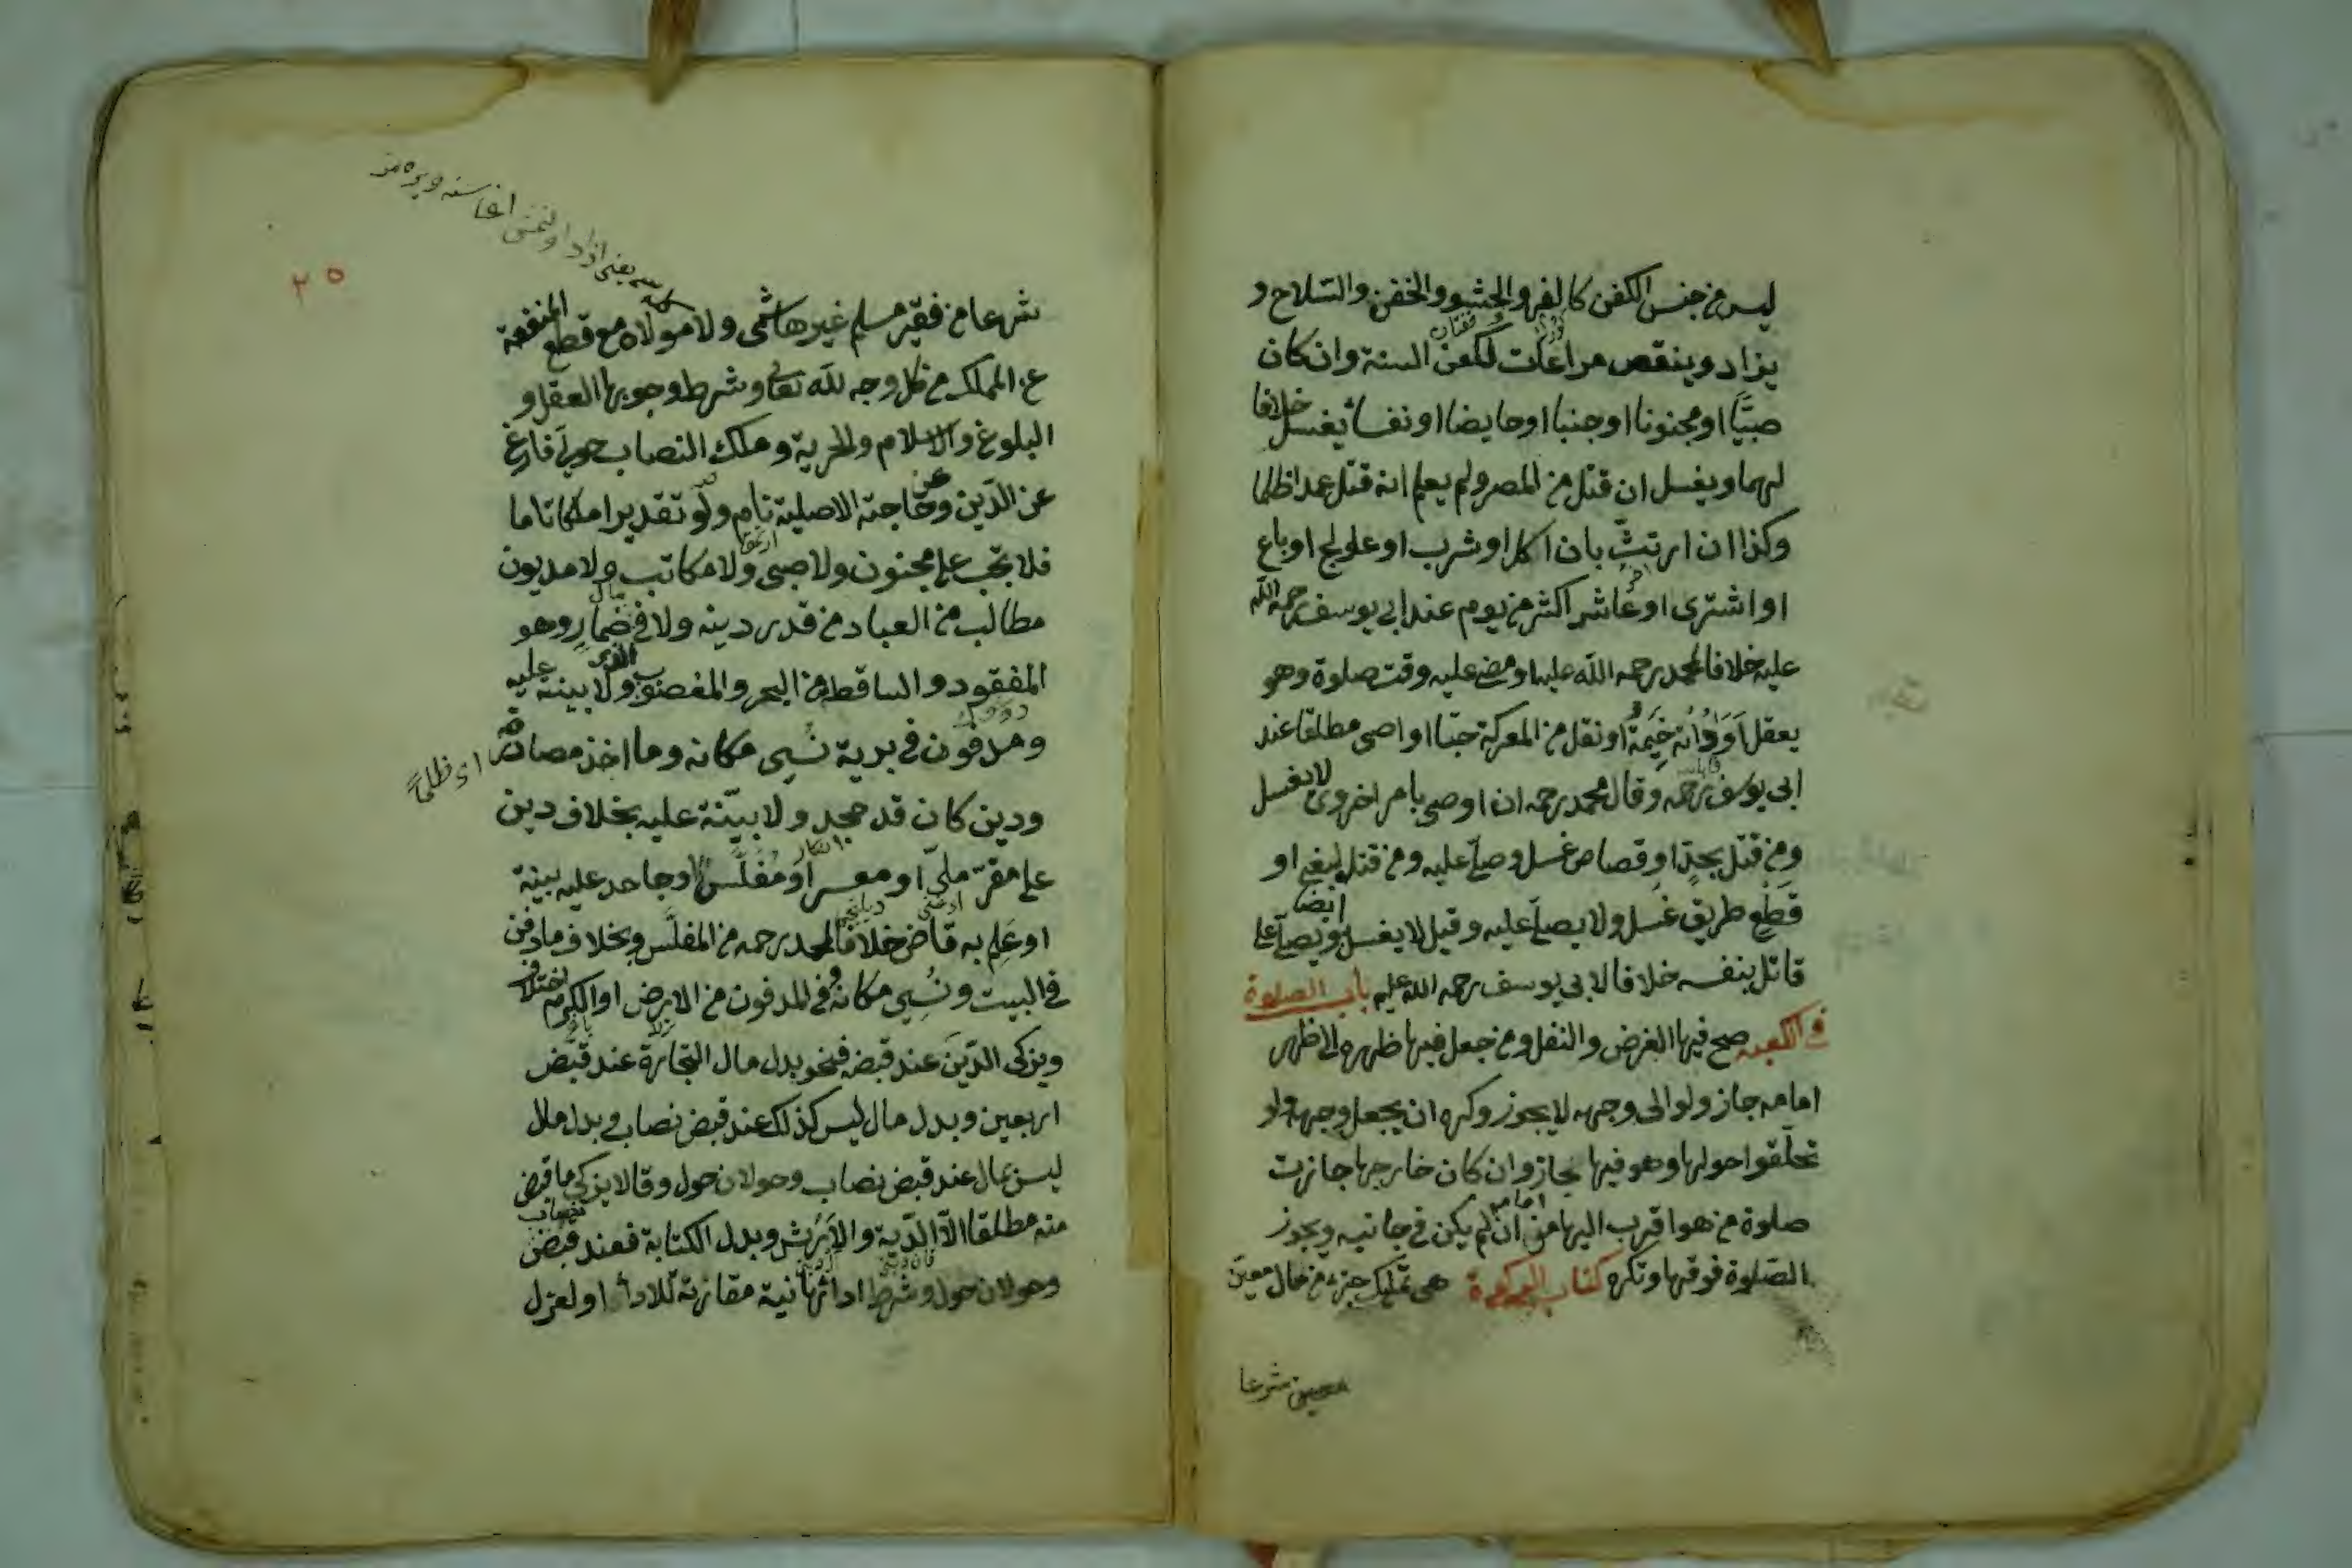 ليس من جنس الكفن كالفرو والحشو والخفن والسلاح و
يزاد وينقص مراعات لكفن السنة وان كان
صبيّا او مجنونا او جنبا او حايضا او نفساء يغسل خلافا
لهما ويغسل ان قتل من المصر ولم يعلم انه قتل عمدا ظلما
وكذا ان ارتثّ بان اكل او شرب او عولج او باع
او اشترى او عاش اكثر من يوم عند ابي يوسف رحمه الله
عليه خلافا لمحمد رحمه الله عليه او مضى عليه وقت صلوة وهو
يعقل او واته خيمة او نقل من المعركة حيّا او اصى مطلقا عند
ابى يوسف رحمه وقال محمد رحمه ان اوصى بامر اخروى لا يغسل
ومن قتل بحدّ او قصاص غسل وصلّى عليه ومن قتل لبغى او
قطع طريق غسل ولا يصلّى عليه وقيل لا يغسل ايضا ويصلّى على
قاتل بنفسه خلافا لابى يوسف رحمه الله عليه باب الصلوة
فى الكعبه صح فيها الفرض والنفل ومن جعل فيها ظهره الى ظهر
امامه جاز ولو الى وجهه لا يجوز وكره ان يجعل وجهه ولو
تحلّقوا حولها وهو فيها جاز وان كان خارجها جازت
صلوة من هو اقرب اليها من امامه ان لم يكن فى جانبه ويجوز
الصّلوة فوقها وتكره كتاب الزكوة هى تمليك جزء من مال معين
معين شرعا
٢٥
شرعا من فقير مسلم غير هاشمى ولا مولاه مع قطع المنفعة
عن المملك من كل وجه لله تعالى وشرط وجوبها العقل و
البلوغ والاسلام والحرية وملك النصاب حوليّ فارغ
عن الدّين وعن حاجته الاصلية نام ولو تقديرا ملكا تاما
فلا تجب على مجنون ولا صبى ولا مكاتب ولا مديون
مطالب من العباد من قدر دينه ولا فى ضمار وهو
المفقود والساقط من البحر والمغصوب الذى ولا بينة عليه
ومدفون فى برية نُسِى مكانه وما اخذ مصادرة
اى ظلمًا
ودين كان قد جحد ولا بيّنة عليه بخلاف دين
على مقرّ ملىّ او معسر او مفلّس او جاحد عليه بينة
او علم به قاض خلافا لمحمد رحمه من المفلّس وبخلاف ما دفن
فى البيت ونُسِى مكانه وفى المدفون من الارض او الكرم اختلاف
ويزكى الدّين عند قبضه فنحو بدل مال التجارة عند قبض
اربعين وبدل مال ليس كذلك عند قبض نصاب وبدل مال
ليس بمال عند قبض نصاب وحولان حول وقالا يزكى ما قبض
منه مطلقا الّا الدّية والارش وبدل الكتابة فعند قبض نصاب
وحولان حول وشرط ادائها نية مقارنة للاداء او لعزل